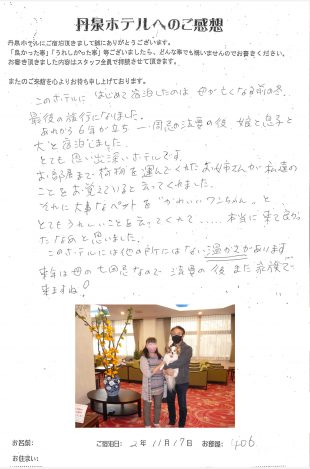 丹泉ホテルへのご感想
丹泉ホテルにご宿泊頂きまして誠にありがとうございます。
「良かった事」「うれしかった事」等ございましたら、どんな事でも構いませんのでお書きください。
お書き頂きました内容はスタッフ全員で拝読させて頂きます。
またのご来館を心よりお待ち申し上げております。
このホテルに はじめて宿泊したのは 母が亡くなる前の冬、
最後の旅行になりました。
あれから6年が立ち 一周忌の法要の後 娘と息子と
犬と宿泊しました。
とても思い出深いホテルです。
お部屋まで荷物を運んでくれたお姉さんが私達の
ことをお覚えていると云ってくれました。
それに大事なペットを "かわいいワンちゃん"と
とてもうれしいことを云ってくれて..... 本当に来て良かっ
たなあと思いました。
このホテルには他の所にはない温かさがあります。
来年は母の七回忌なので 法要の後 また家族で
来ますね!
お名前:
ご宿泊日: 2年11月17日
お部屋: 406
お住まい: